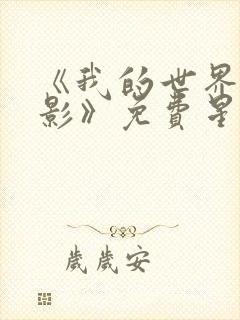 《我的世界
影》免费星
歲歲安